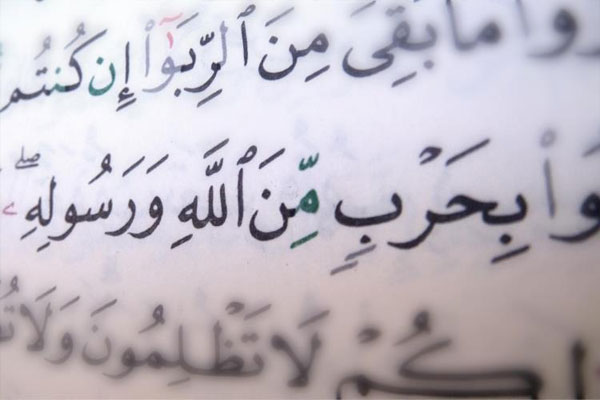 رُوا۟ مَا بَقِىَ مِنَ ٱلرِّبَوٰٓا۟ إِن كُنتُم
وا۟ بِحَرْبٍ مِّنَ ٱللَّهِ وَرَسُولِهِۦ ۖ
لِكُمْ لَا تَظْلِمُونَ وَلَا تُ